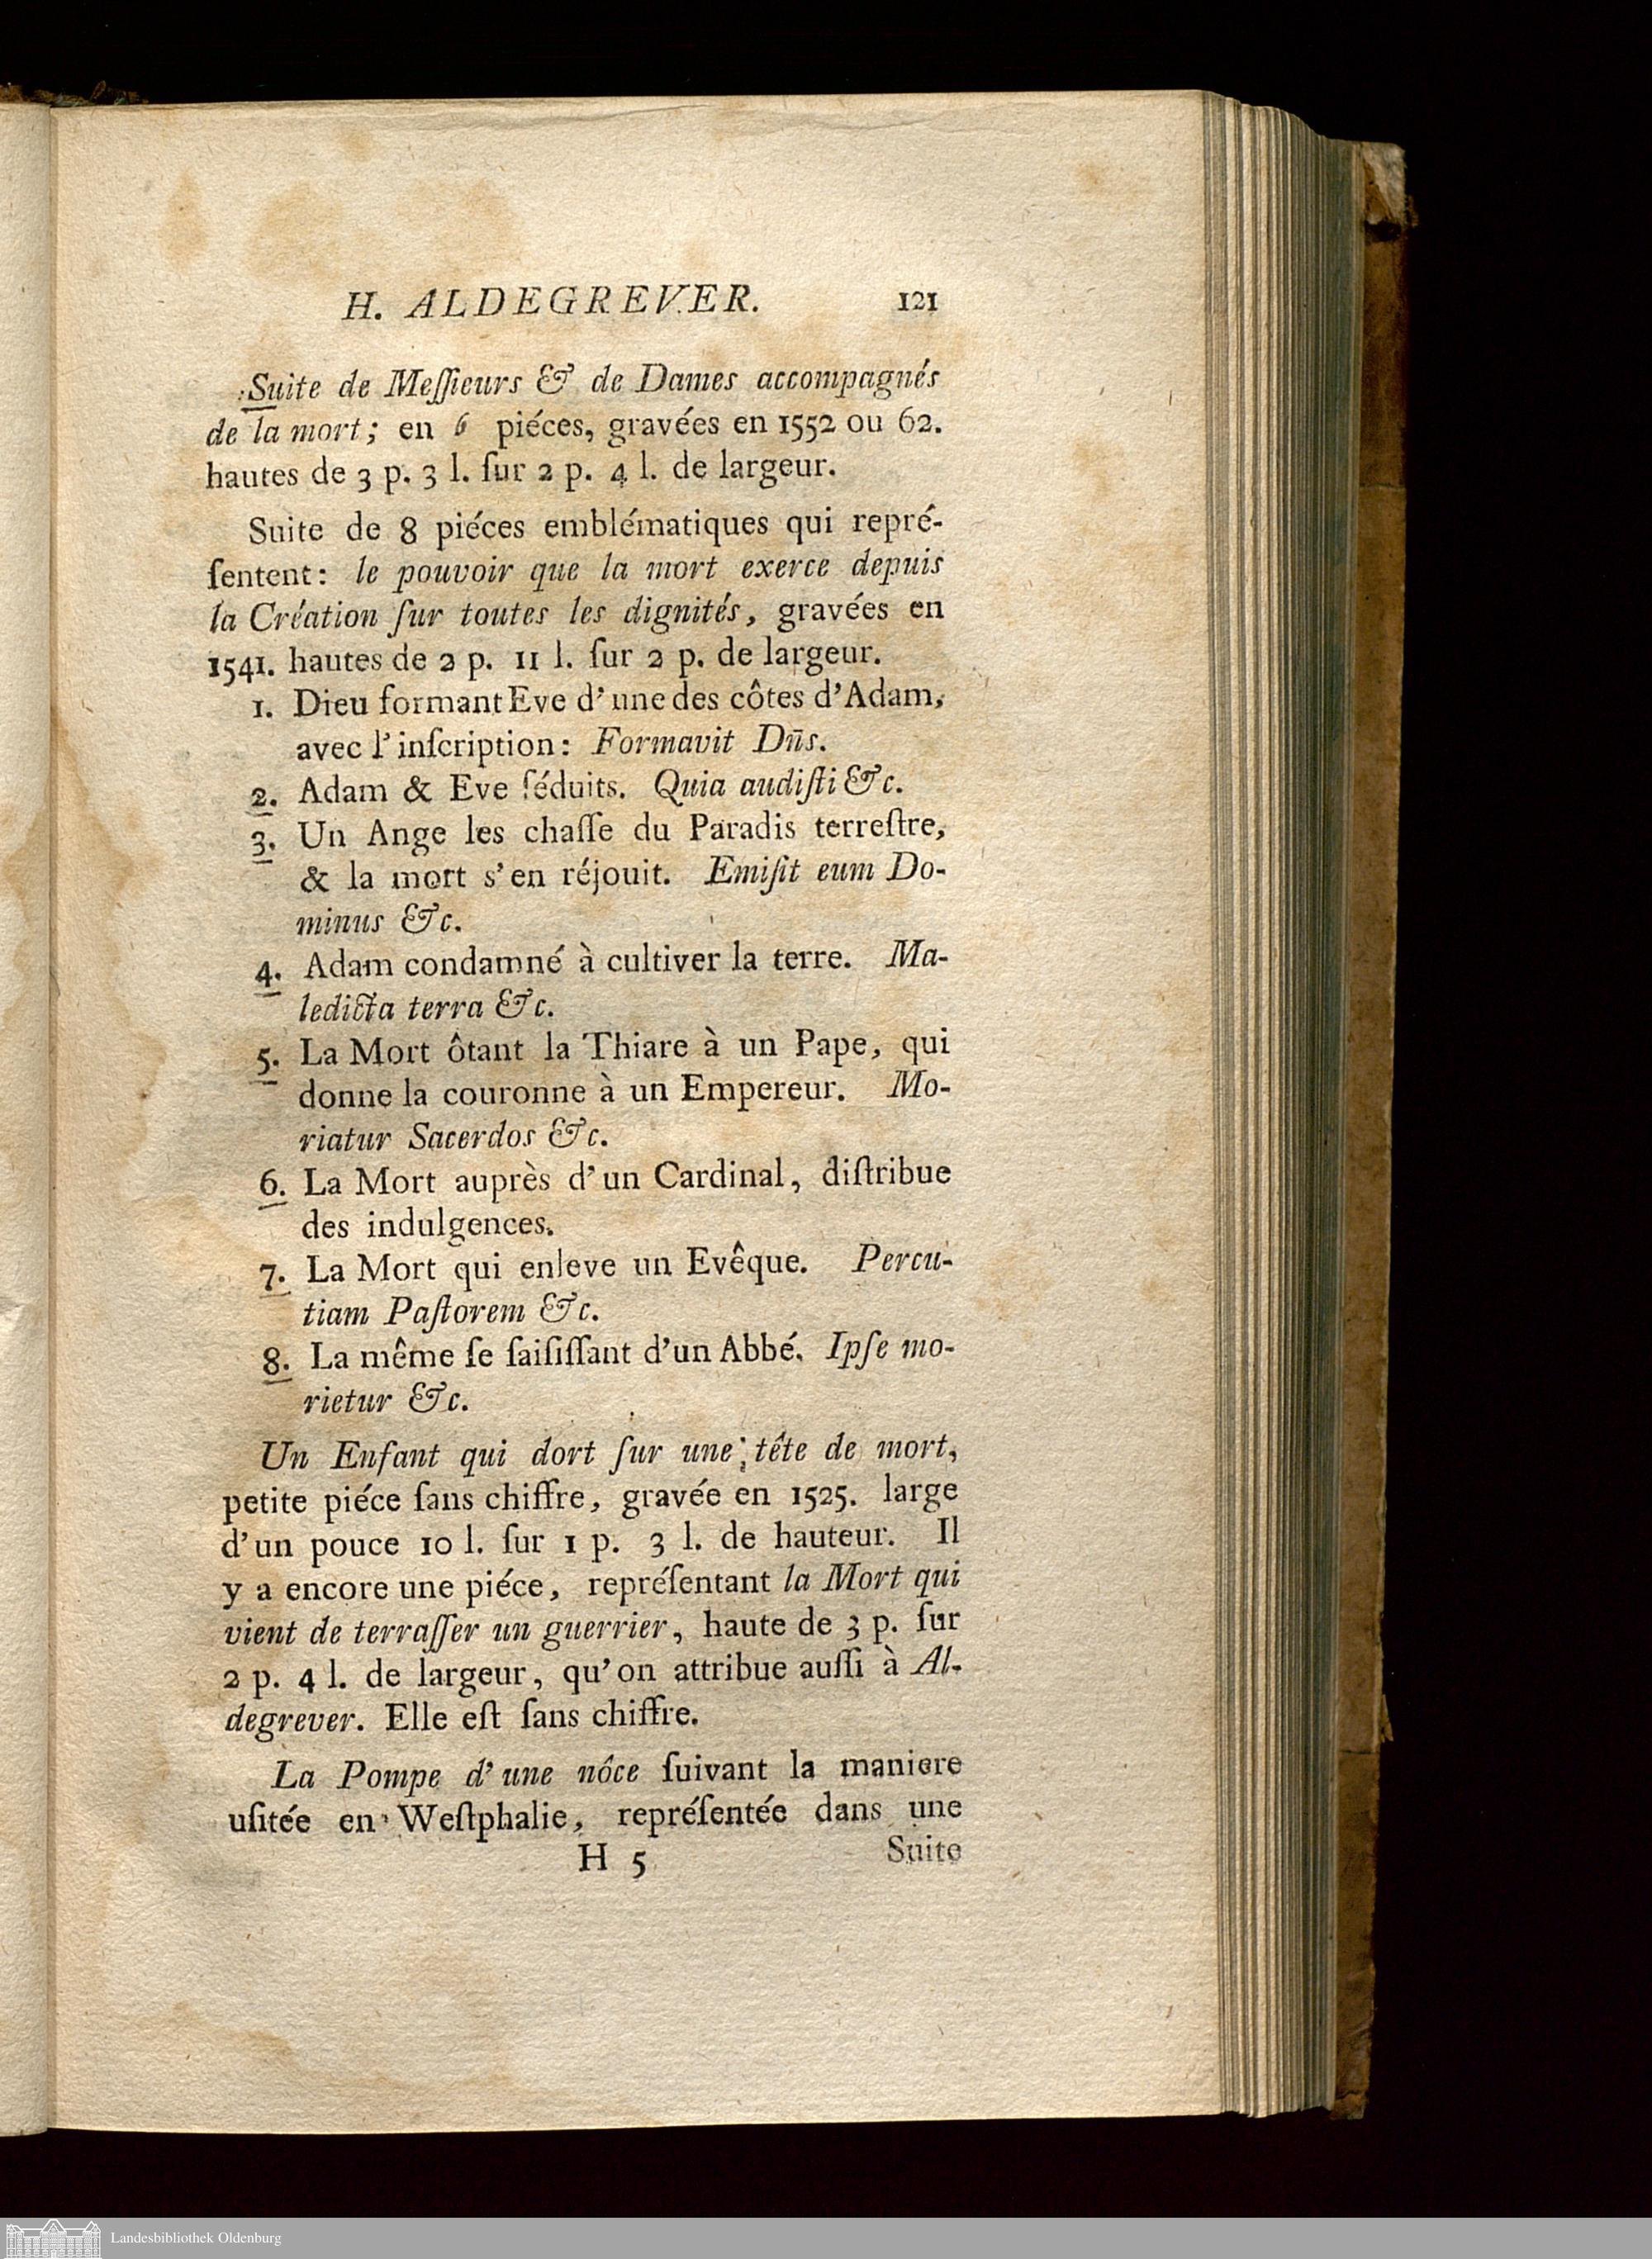 H. ALDEGREVER. 121
Suite de Meſſieurs & de Dames accompagnés
de la mort; en 6 piéces, gravées en 1552 ou 62.
hautes de 3 p. 3 l. ſur 2 p. 4 l. de largeur.
Suite de 8 piéces emblématiques qui repré-
ſentent: le pouvoir que la mort exerce depuis
la Création ſur toutes les dignités, gravées en
1541. hautes de 2 p. 11 l. ſur 2 p. de largeur.
1. Dieu formant Eve d'une des côtes d'Adam,
avec l'inſcription: Formavit Dn̄s.
2. Adam & Eve ſéduits. Quia audiſti &c.
3. Un Ange les chaſſe du Paradis terreſtre,
& la mort s'en réjouit. Emiſit eum Do-
minus &c.
4. Adam condamné à cultiver la terre. Ma-
ledicta terra &c.
5. La Mort ôtant la Thiare à un Pape, qui
donne la couronne à un Empereur. Mo-
riatur Sacerdos &c.
6. La Mort auprès d'un Cardinal, diſtribue
des indulgences.
7. La Mort qui enleve un Evêque. Percu-
tiam Paſtorem &c.
8. La même ſe ſaiſiſſant d'un Abbé. Ipſe mo-
rietur &c.
Un Enfant qui dort ſur une tête de mort,
petite piéce ſans chiffre, gravée en 1525. large
d'un pouce 10 l. ſur 1 p. 3 l. de hauteur. Il
y a encore une piéce, repréſentant la Mort qui
vient de terraſſer un guerrier, haute de 3 p. ſur
2 p. 4 l. de largeur, qu'on attribue auſſi à Al-
degrever. Elle eſt ſans chiffre.
La Pompe d'une nôce ſuivant la maniere
uſitée en Weſtphalie, repréſentée dans une
H 5 Suite
Landesbibliothek Oldenburg